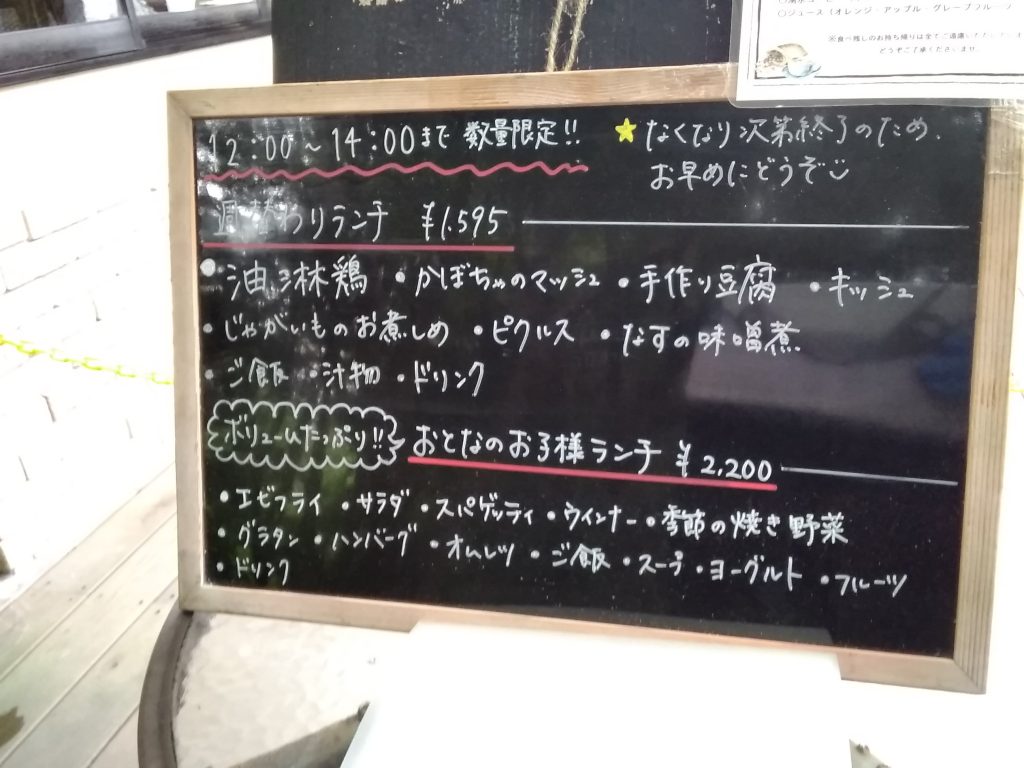 ○ジュース（オレンジ・アップル・グレープフルーツ
※食べ残しのお持ち帰りは全てご遠慮いただいて
どうぞご了承くださいませ。
12:00～14:00まで 数量限定!!
★なくなり次第終了のため、
お早めにどうぞ
週替わりランチ ¥1.595
・油淋鶏 ・かぼちゃのマッシュ ・手作り豆腐 ・キッシュ
・じゃがいものお煮しめ ・ピクルス ・なすの味噌煮
・ご飯 ・汁物 ・ドリンク
ボリュームたっぷり!! おとなのお子様ランチ ¥2.200
・エビフライ ・サラダ ・スパゲッティ ・ウインナー ・季節の焼き野菜
・グラタン ・ハンバーグ ・オムレツ ・ご飯 ・スープ ・ヨーグルト ・フルーツ
・ドリンク